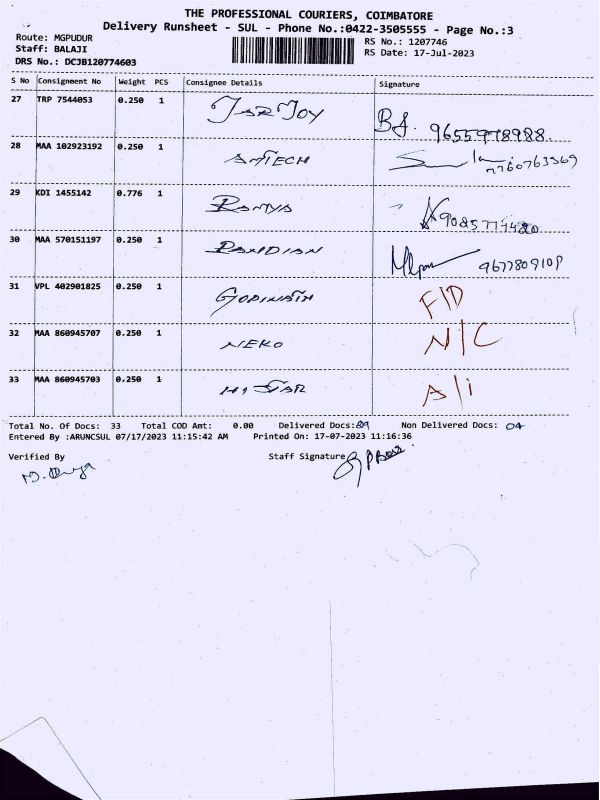 THE PROFESSIONAL COURIERS, COIMBATORE
Delivery Runsheet - SUL - Phone No.:0422-3505555 - Page No.:3
Route: MGPUDUR
Staff: BALAJI
DRS No.: DCJB120774603
RS No.: 1207746
RS Date: 17-Jul-2023
S No Consignment No Weight PCS Consignee Details Signature
27 TRP 7544053 0.250 1 9655978988
28 MAA 102923192 0.250 1 AMTECH 7760763369
29 KDI 1455142 0.776 1 RAMYA
30 MAA 570151197 0.250 1 PANDIAN 9677809109
31 VPL 402901825 0.250 1 F/D
32 MAA 860945707 0.250 1 NEKO N/C
33 MAA 860945703 0.250 1 HI STAR A/i
Total No. Of Docs: 33 Total COD Amt: 0.00 Delivered Docs: 29 Non Delivered Docs: 04
Entered By :ARUNCSUL 07/17/2023 11:15:42 AM Printed On: 17-07-2023 11:16:36
Verified By Staff Signature